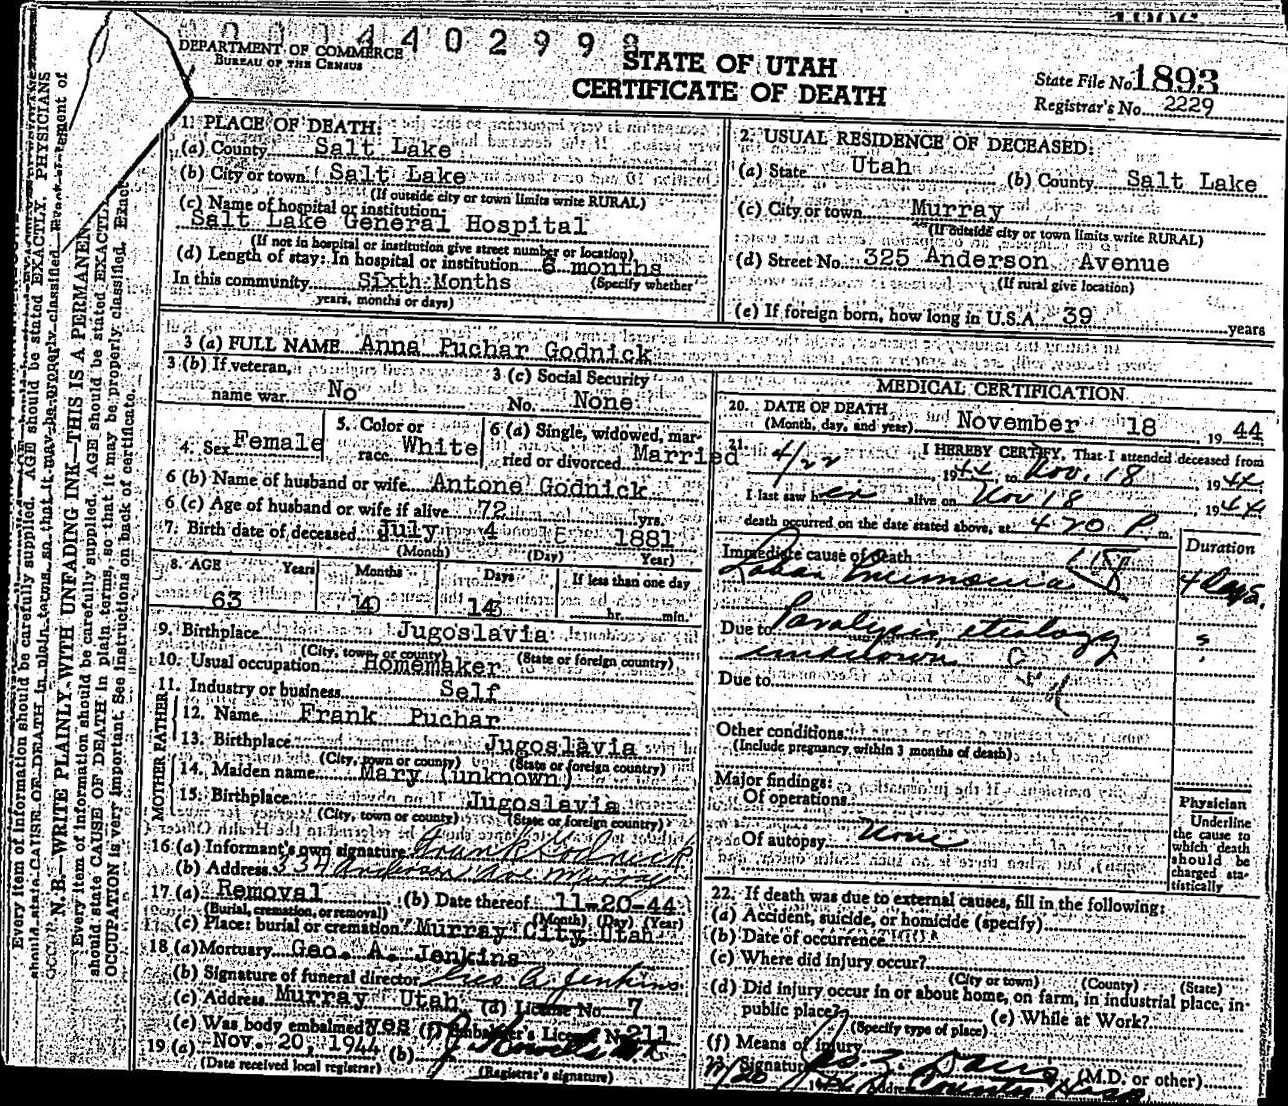 DEPARTMENT OF COMMERCE
BUREAU OF THE CENSUS
STATE OF UTAH
CERTIFICATE OF DEATH
State File No. 1893
Registrar's No. 2229
1. PLACE OF DEATH:
(a) County Salt Lake
(b) City or town Salt Lake
(If outside city or town limits write RURAL)
(c) Name of hospital or institution:
Salt Lake General Hospital
(If not in hospital or institution give street number or location)
(d) Length of stay: In hospital or institution 6 months
In this community Sixth Months (Specify whether
years, months or days)
2. USUAL RESIDENCE OF DECEASED:
(a) State Utah (b) County Salt Lake
(c) City or town Murray
(If outside city or town limits write RURAL)
(d) Street No. 325 Anderson Avenue
(If rural give location)
(e) If foreign born, how long in U.S.A. 39 years
3 (a) FULL NAME Anna Puchar Godnick
3 (b) If veteran, name war No
3 (c) Social Security No. None
4. Sex Female
5. Color or race White
6 (a) Single, widowed, married or divorced Married
6 (b) Name of husband or wife Antone Godnick
6 (c) Age of husband or wife if alive 72 yrs.
7. Birth date of deceased July 4 1881
(Month) (Day) Year)
8. AGE Years Months Days If less than one day
63 14 hr. min.
9. Birthplace Jugoslavia
(City, town, or county) (State or foreign country)
10. Usual occupation Homemaker
11. Industry or business Self
FATHER
12. Name Frank Puchar
13. Birthplace Jugoslavia
(City, town or county) (State or foreign country)
MOTHER
14. Maiden name Mary (unknown)
15. Birthplace Jugoslavia
(City, town or county) (State or foreign country)
16 (a) Informant's own signature Frank Godnick
(b) Address Anderson Ave Murray
17 (a) Removal (b) Date thereof 11-20-44
(Burial, cremation, or removal) (Month) (Day) (Year)
(c) Place: burial or cremation Murray City, Utah
18 (a) Mortuary Geo. A. Jenkins
(b) Signature of funeral director Geo A. Jenkins
(c) Address Murray Utah (d) License No. 7
(e) Was body embalmed Yes (f) Embalmer's License No. 211
19 (a) Nov. 20, 1944 (b)
(Date received local registrar) (Registrar's signature)
MEDICAL CERTIFICATION
20. DATE OF DEATH
(Month, day, and year) November 18, 1944
21. I HEREBY CERTIFY, That I attended deceased from
4/22, 1944 to Nov. 18 1944
I last saw her alive on Nov 18, 1944
death occurred on the date stated above, at 4 20 P. m.
Duration
Immediate cause of death
Lobar Pneumonia 4 Days.
Due to Paralysis, etiology ?
unknown
Due to
Other conditions
(Include pregnancy within 3 months of death)
Major findings:
Of operations
Of autopsy None
Physician
Underline
the cause to
which death
should be
charged sta-
tistically
22. If death was due to external causes, fill in the following:
(a) Accident, suicide, or homicide (specify)
(b) Date of occurrence
(c) Where did injury occur?
(City or town) (County) (State)
(d) Did injury occur in or about home, on farm, in industrial place, in
public place? (e) While at Work?
(Specify type of place)
(f) Means of injury
23. Signature (M.D. or other)
Address
Every item of information should be carefully supplied. AGE should be stated EXACTLY. PHYSICIANS
N.B.—WRITE PLAINLY WITH UNFADING INK—THIS IS A PERMANEN
Every item of information should be carefully supplied. AGE should be stated EXACTLY.
should state CAUSE OF DEATH in plain terms, so that it may be properly classified. Exact
OCCUPATION is very important. See instructions on back of certificate.